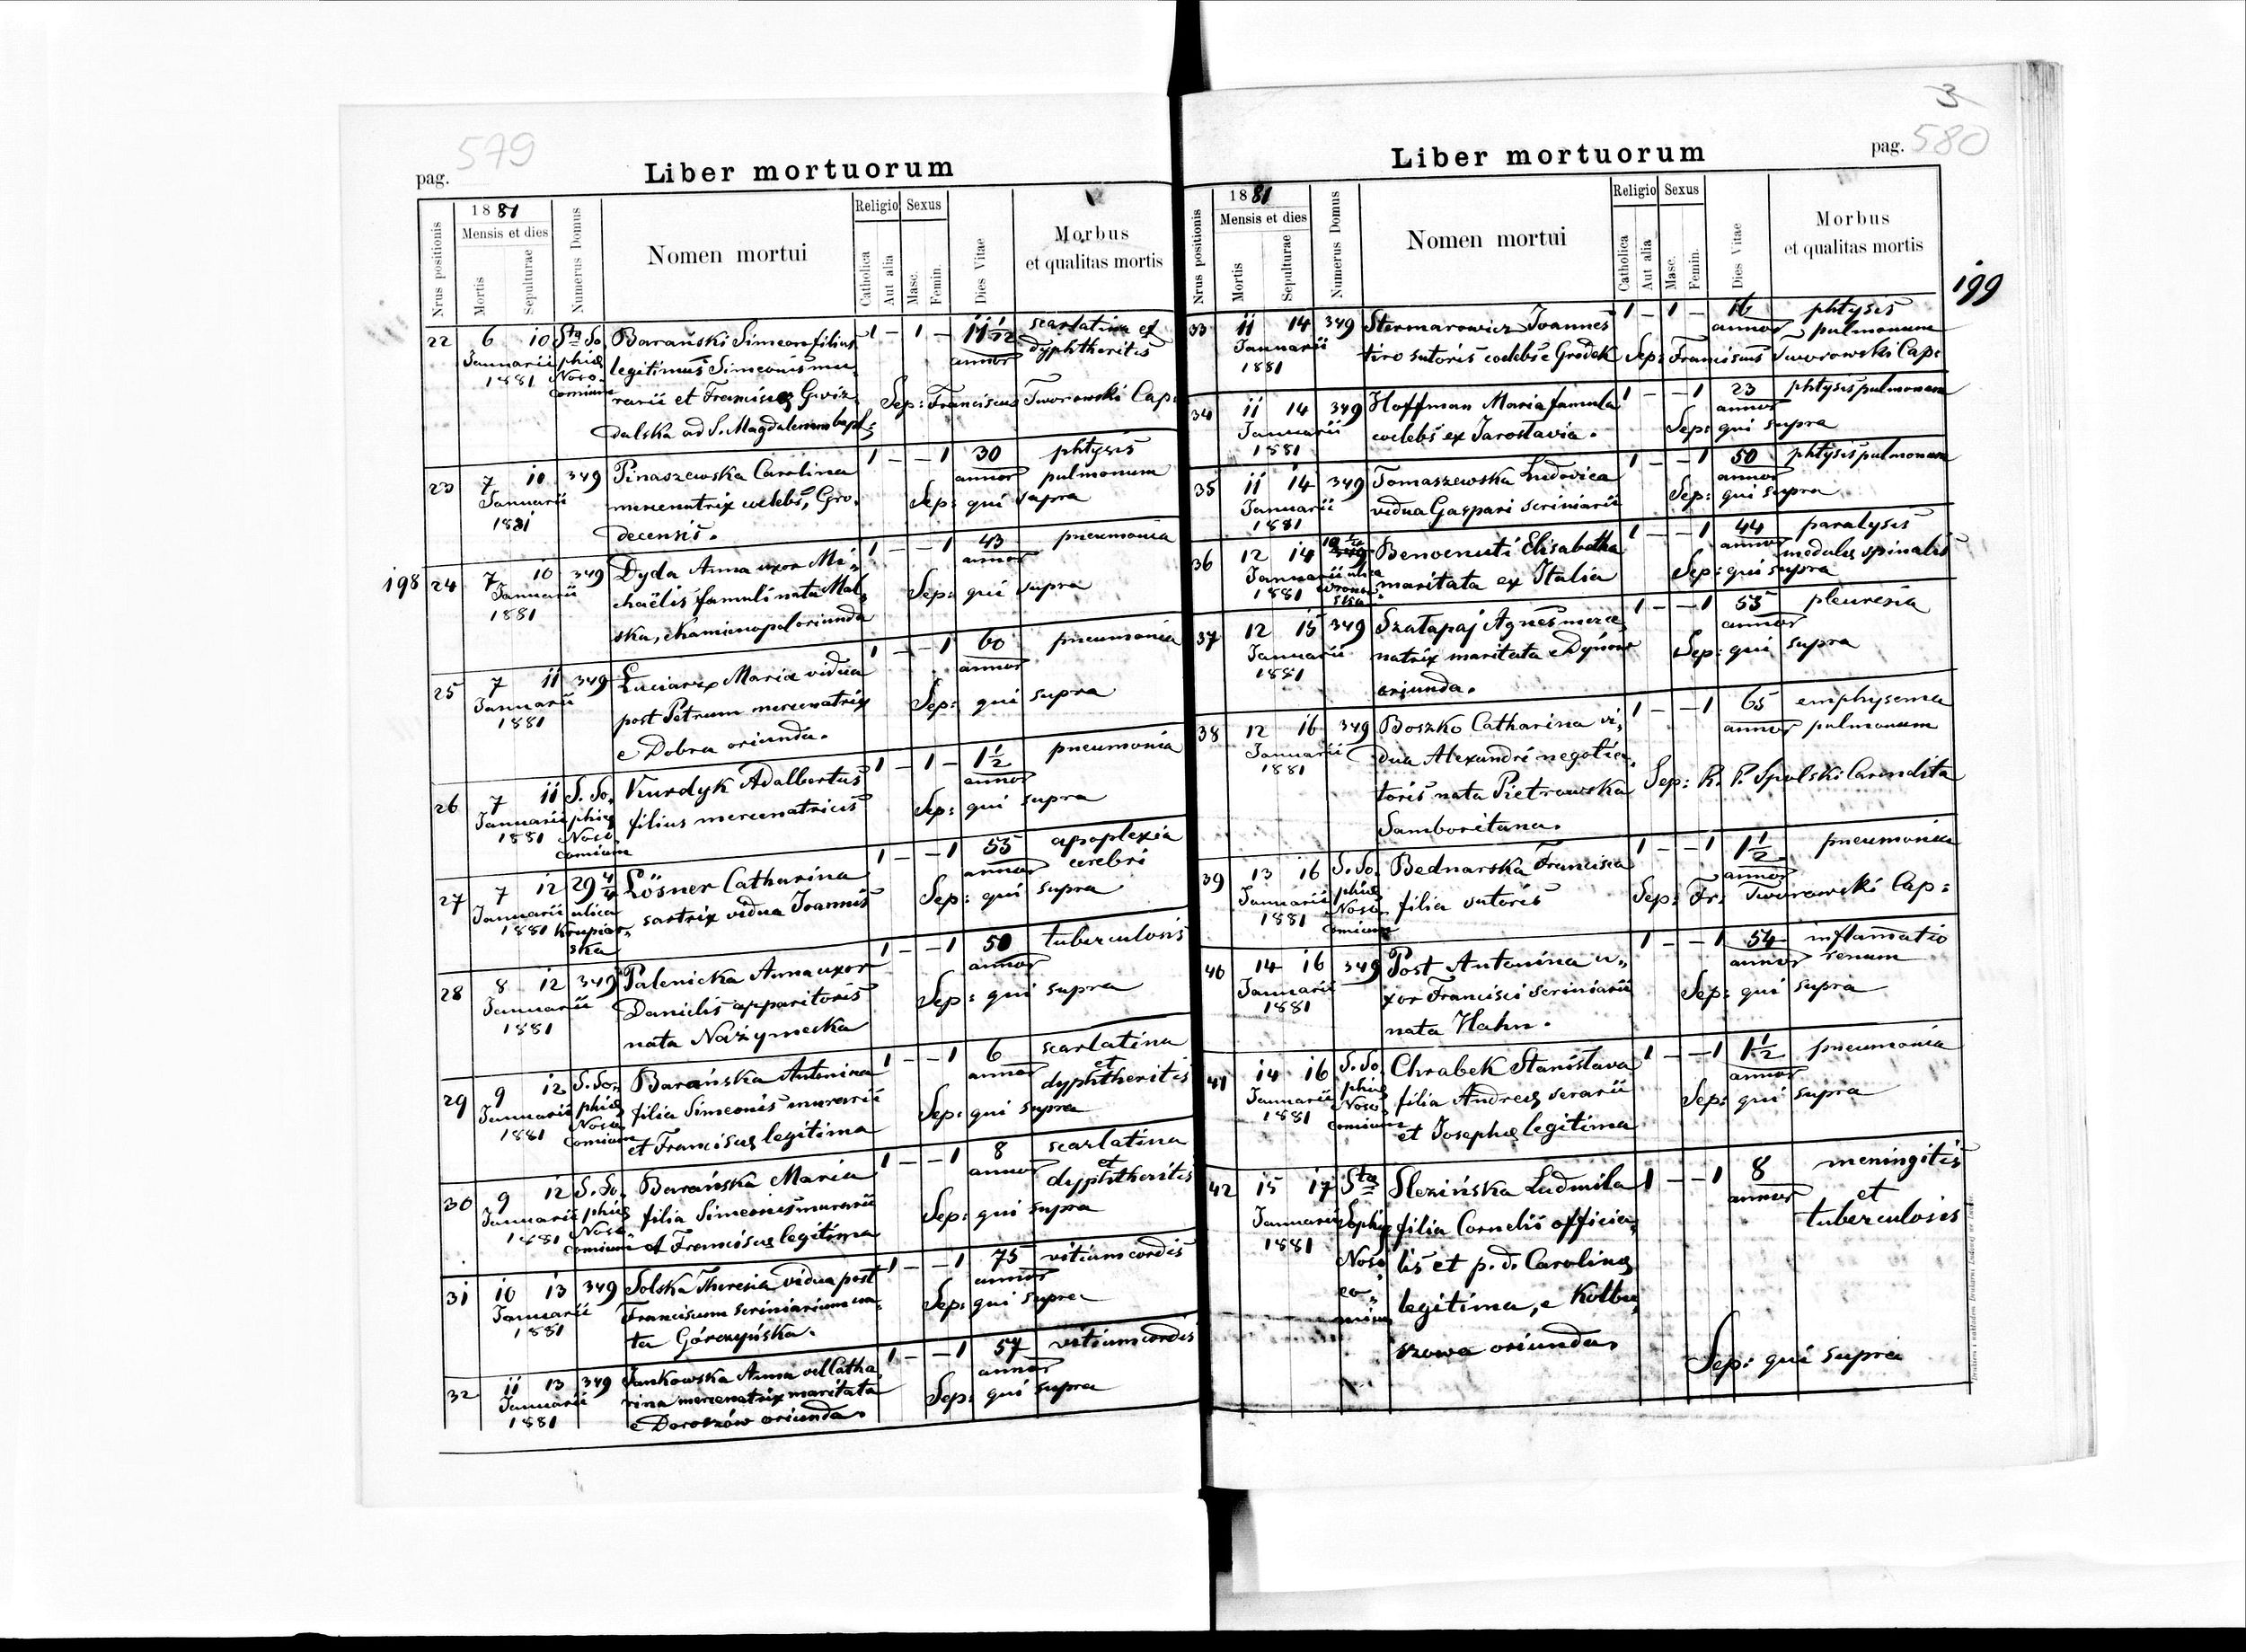 579
pag.
Liber mortuorum
Nrus positionis
1881
Mensis et dies
Mortis
Sepulturae
Numerus Domus
Nomen mortui
Religio
Catholica
Aut alia
Sexus
Masc.
Femin.
Dies Vitae
Morbus
et qualitas mortis
22 6 10 Sta So. Barański Simeon filius 1 – 1 – scarlatina et
Januarii phiæ legitimus Simeonis mu annor dyphtheritis
1881 Noso. rarii et Franciscæ Gwiz. Sep: Franciscus Tworowski Cap:
comium dalska ad S. Magdalenam bapt:
23 7 10 349 Pinaszewska Carolina 1 – – 1 30 phtysis
Januarii mercenatrix coelebs, Gro. annor pulmonum
1881 decensis. Sep: qui supra
198 24 7 10 349 Dyda Anna uxor Mi„ 1 – – 1 43 pneumonia
Januarii chaëlis famuli nata Mal„ annor
1881 ska, e Kamionopol oriunda Sep: qui supra
25 7 11 349 Luciarz Maria vidua 1 – – 1 60 pneumonia
Januarii post Petrum mercenatrix annor
1881 e Dobra oriunda. Sep: qui supra
26 7 11 S. So. Kurdyk Adalbertus 1 – 1 – 1½ pneumonia
Januarii phiæ filius mercenatricis annor
1881 Noso Sep: qui supra
comium
27 7 12 29 4/4 Lösner Catharina 1 – – 1 55 apoplexia
Januarii ulica sartrix vidua Joannis annor cerebri
1881 Krupiar„ Sep: qui supra
ska
28 8 12 349 Palenicka Anna uxor 1 – – 1 50 tuberculosis
Januarii Danielis apparitoris annor
1881 nata Nażymecka Sep: qui supra
29 9 12 S. So. Barańska Antonina 1 – – 1 6 scarlatina
Januarii phiæ filia Simeonis murarii annor et
1881 Noso dyphtheritis
comium et Franciscæ legitima Sep: qui supra
30 9 12 S. So. Barańska Maria 1 – – 1 8 scarlatina
Januarii phiæ filia Simeonis murarii annor et
1881 Noso dyphtheritis
comium et Franciscæ legitima Sep: qui supra
31 10 13 349 Solska Theresia vidua post 1 – – 1 75 vitium cordis
Januarii Franciscum scriniarium na„ annor
1881 ta Górczyńska. Sep: qui supra
32 11 13 349 Jankowska Anna vel Catha„ 1 – – 1 57 vitium cordis
Januarii rina mercenatrix maritata annor
1881 e Doroszów oriunda. Sep: qui supra
3
580
Liber mortuorum
pag.
Nrus positionis
1881
Mensis et dies
Mortis
Sepulturae
Numerus Domus
Nomen mortui
Religio
Catholica
Aut alia
Sexus
Masc.
Femin.
Dies Vitae
Morbus
et qualitas mortis
199
33 11 14 349 Stermarowicz Joannes 1 – 1 – 16 phtysis
Januarii tiro sutoris coelebs e Grodek annor pulmonum
1881 Sep: Franciscus Tworowski Cap:
34 11 14 349 Hoffman Maria famula 1 – – 1 23 phtysis pulmonum
Januarii coelebs ex Jaroslavia. annor
1881 Sep: qui supra
35 11 14 349 Tomaszewska Ludovica 1 – – 1 50 phtysis pulmonum
Januarii vidua Gaspari scriniarii annor
1881 Sep: qui supra
36 12 14 Benvenuti Elisabetha 1 – – 1 44 paralysis
Januarii ulica maritata ex Italia annor medulæ spinalis
1881 Wronow„ Sep: qui supra
ska
37 12 15 349 Szałapaj Agnes merce„ 1 – – 1 55 pleuresia
Januarii natrix maritata e Dynów annor
1881 oriunda. Sep: qui supra
38 12 16 349 Boszko Catharina vi„ 1 – – 1 65 emphysema
Januarii dua Alexandri negotia„ annor pulmonum
1881 toris nata Pietrowska Sep: R. P. Spolski Carmelita
Samboritana.
39 13 16 S. So. Bednarska Francisca 1 – – 1 1½ pneumonia
Januarii phiæ filia sutoris annor
1881 Noso Sep: Fr: Tworowski Cap:
comium
40 14 16 349 Post Antonina u„ 1 – – 1 54 inflamatio
Januarii xor Francisci scriniarii annor renum
1881 nata Hahn. Sep: qui supra
41 14 16 S. So. Chrabek Stanislava 1 – – 1 1½ pneumonia
Januarii phiæ filia Andreæ serarii annor
1881 Noso Sep: qui supra
comium et Josephæ legitima
42 15 17 Sta Slezińska Ludmila 1 – – 1 8 meningitis
Januarii Sophiæ filia Cornelii officia„ annor et
1881 Noso lis et p. d. Carolinæ tuberculosis
co„ legitima, e Kolbu„
mium szowa oriunda. Sep: qui supra